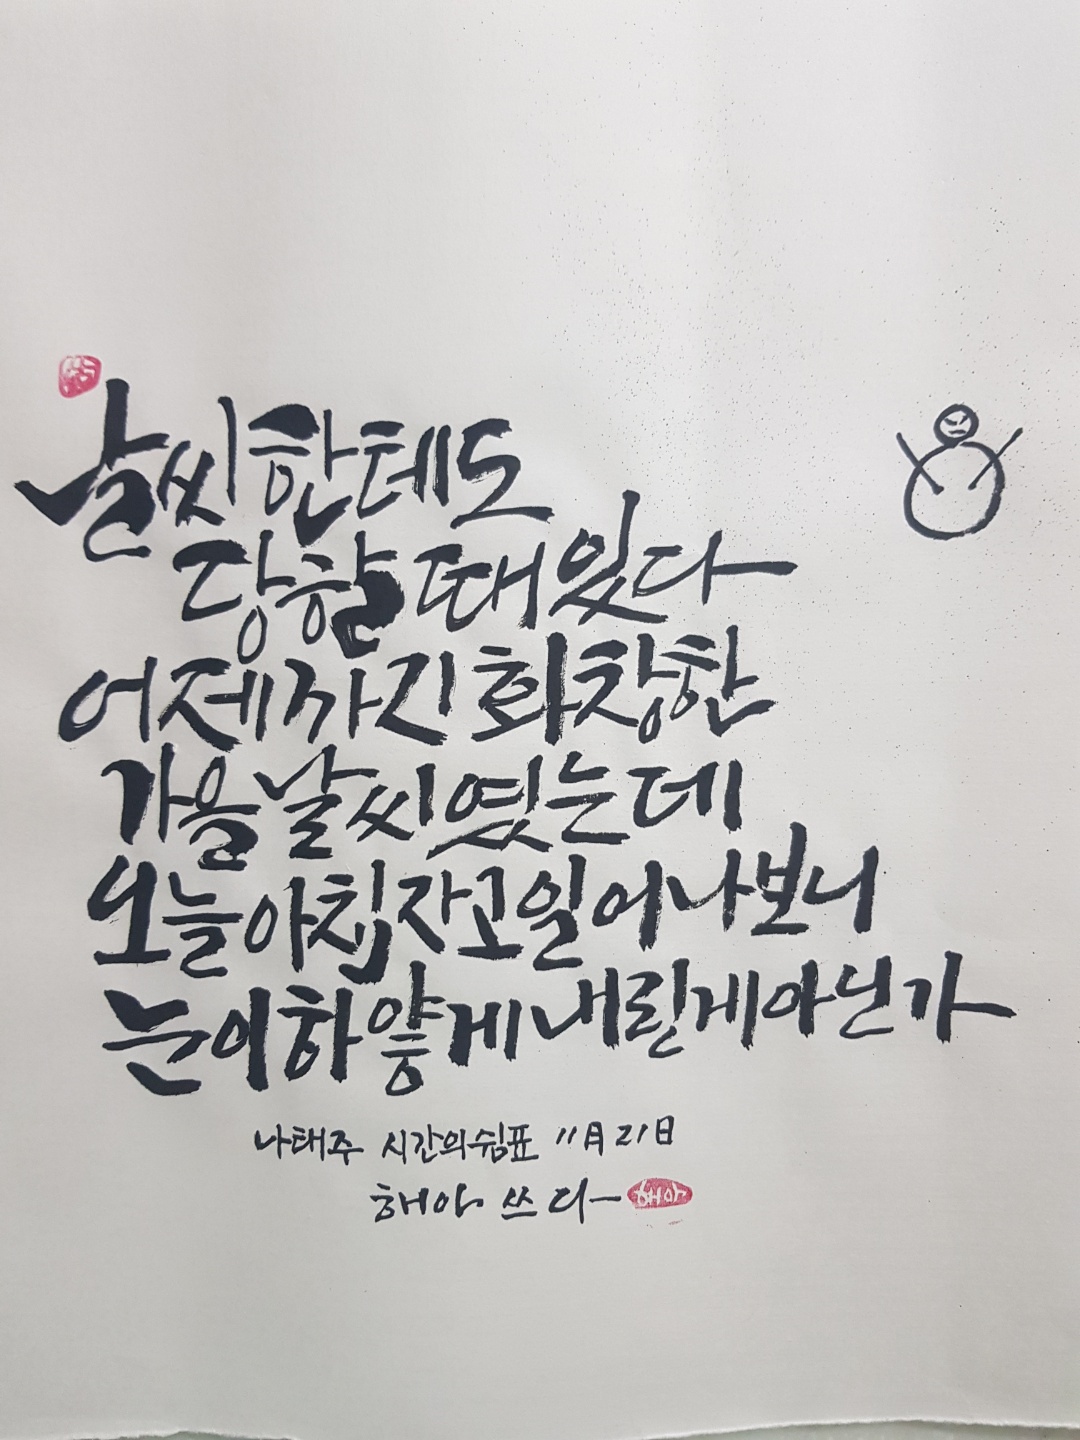 날씨한테도
당할 때 있다
어제까지 화창한
가을 날씨였는데
오늘 아침 자고 일어나보니
눈이 하얗게 내린게 아닌가
나태주 시간의 쉼표 11月 21日
해아 쓰다
해아